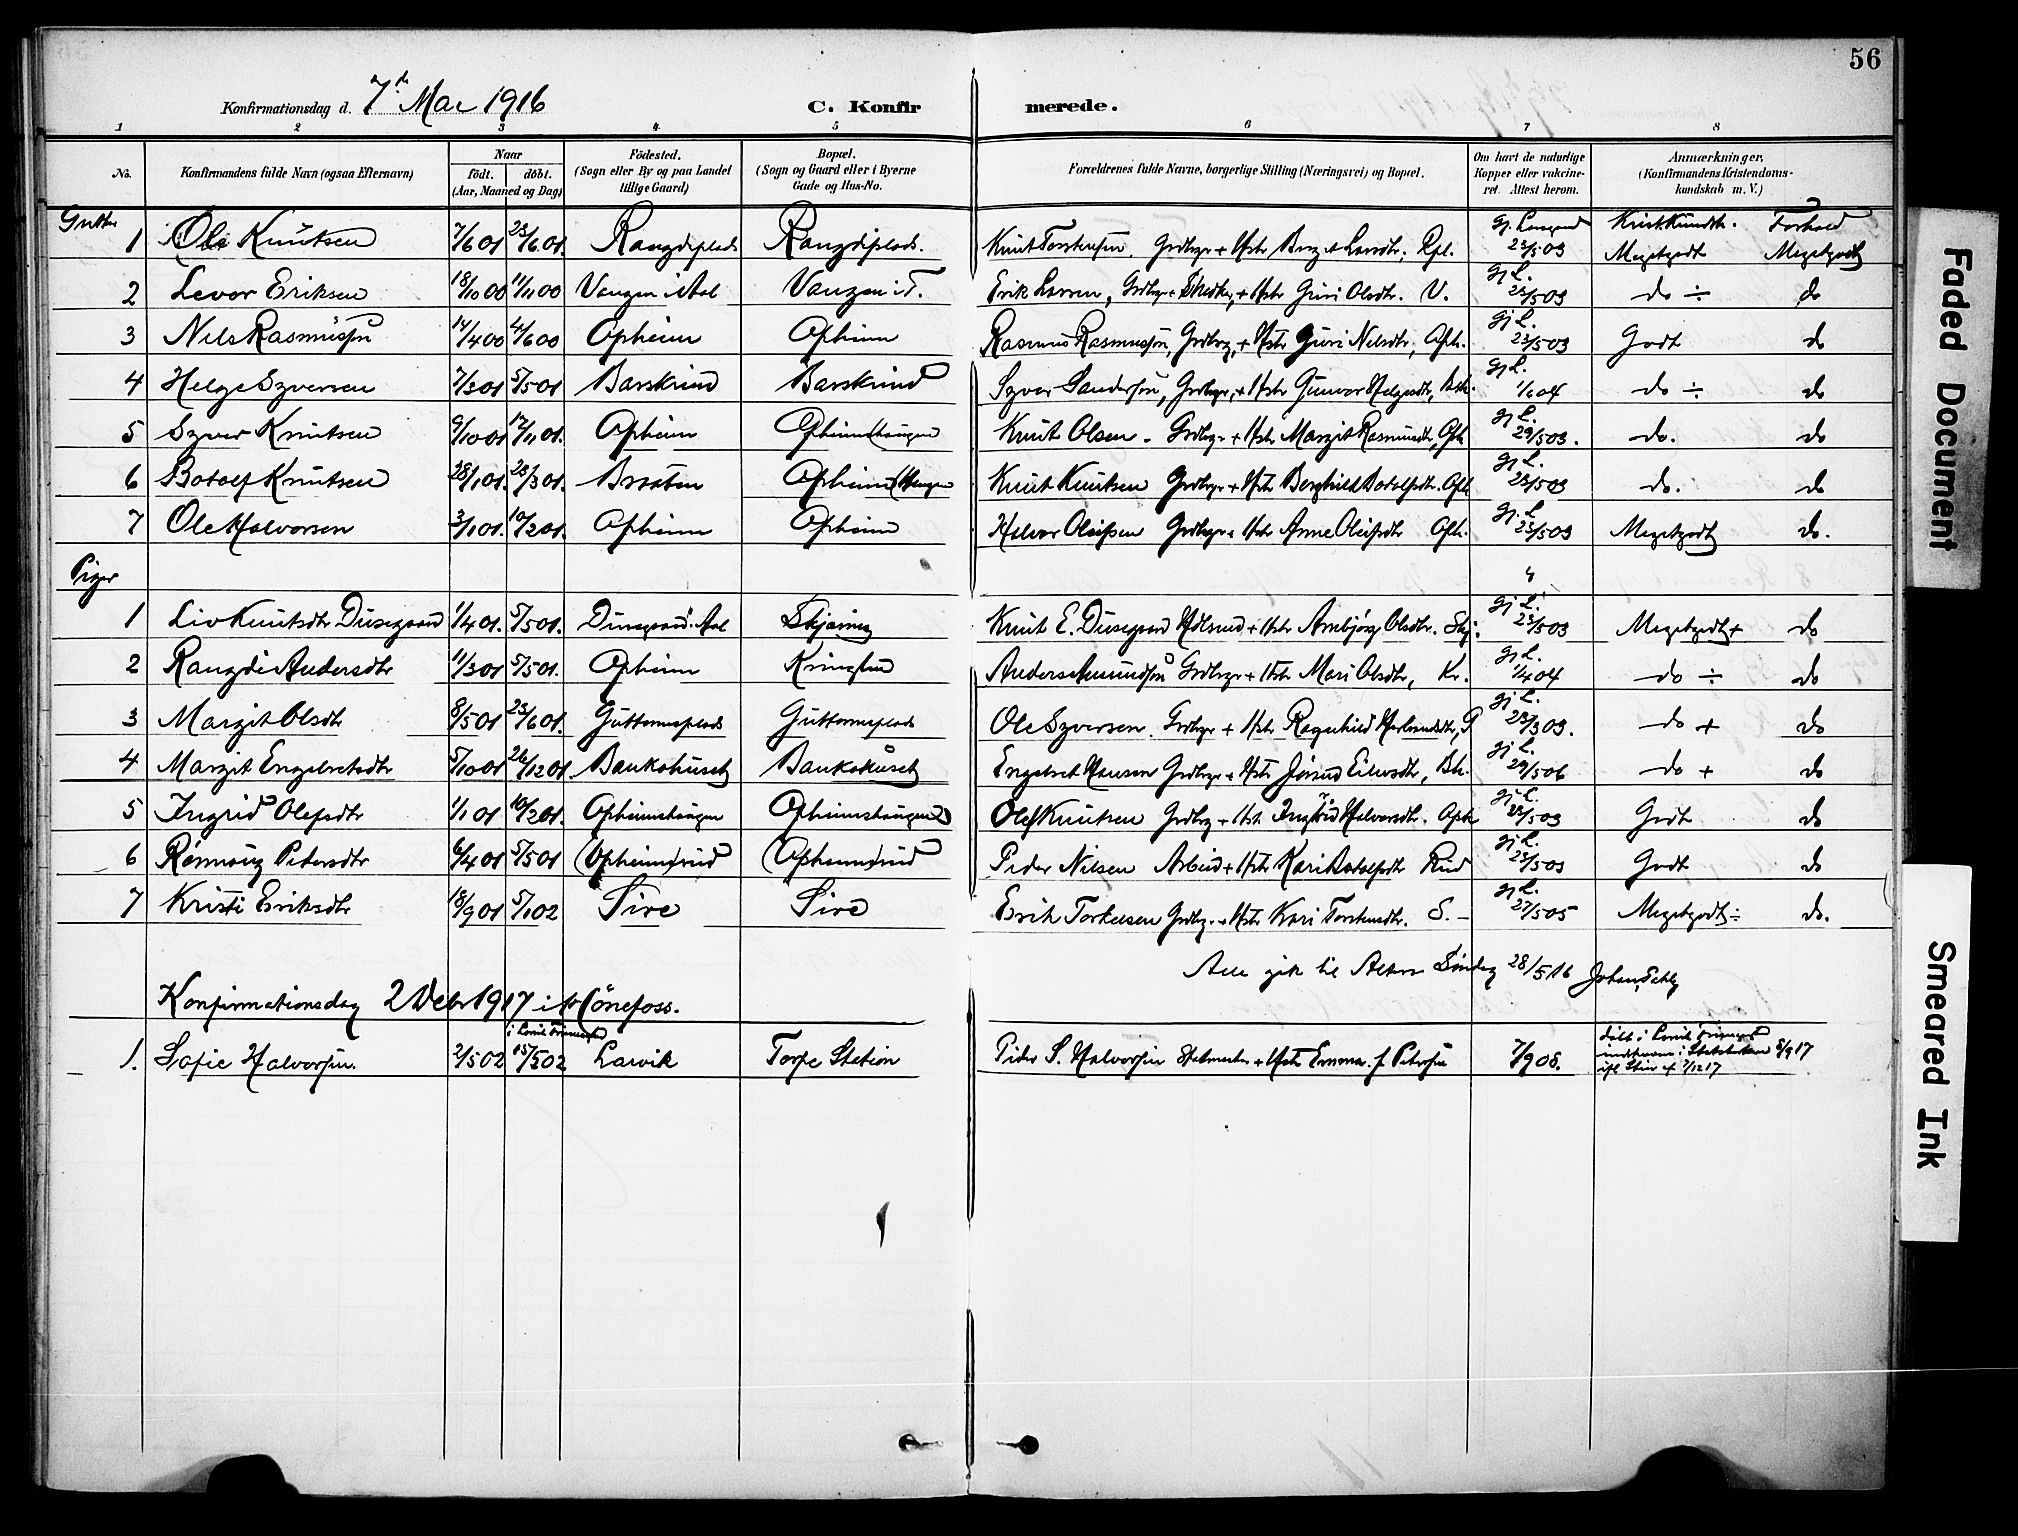 56
Konfirmationsdag d. 7de Mai 1916 C. Konfirmerede.
1 2 3 4 5 6 7 8
No. Konfirmandens fulde Navn (ogsaa Efternavn) Naar født. døbt. (Aar, Maaned og Dag) Fødested. (Sogn eller By og paa Landet tillige Gaard) Bopæl. (Sogn og Gaard eller i Byerne Gade og Hus-No. Forældrenes fulde Navne, borgerlige Stilling (Næringsvei) og Bopæl. Om havt de naturlige Kopper eller vaccineret. Attest herom. Anmærkninger. (Konfirmandens Kristendomskundskab m. V.)
Gutter
1 Ole Knutsen 7/6 01 23/6 01. Rangdiplads Rangdiplads. Knut Torstensen, Grdbrgr + Hstr Birgit Larsdtr, Rpl. 23/5 03 Krist.kundsk. Megetgodt Forhold Megetgodt
2 Levor Eriksen 18/10 00 11/11 00 Vangen i Aal Vangen i T. Erik Larsen, Hstr Guri Olsdtr. V. gj L. 23/5 03 do ÷ do
3 Nils Rasmussen 14/4 00 4/6 00 Opheim Opheim Rasmus Rasmussen, Grdbrgr, + Hstr Guri Nilsdtr, Oph. gj L. 23/5 03 Godt do
4 Helge Syversen 7/3 01 5/5 01 Barskrind Barskrind Syver Sandersen, Grdbrgr, + Hstr Gunvor Helgesdtr, gj L. 1/6 04 do ÷ do
5 Syver Knutsen 9/10 01 17/11 01. Opheim Opheimshaugen Knut Olsen - Grdbrgr + Hstr Margit Rasmusdtr, Oph gj L. 29/5 03. do. do
6 Botolf Knutsen 28/1 01. 23/3 01. Braaten Opheim (Haugen Knut Knutsen Grdbrgr + Hstr Berghild Botolfsdtr. Oph gj L. 23/5 03 do. do
7 Ole Halvorsen 3/1 01. 10/2 01. Opheim Opheim Halvor Oleifsen Grdbrgr + Hstr Anne Oleifsdtr Oph. gj. L. 23/5 03 Megetgodt do.
Piger
1 Liv Knutsdtr Dusegaard 1/4 01. 5/5 01. Dusegaard. Aal Skjerving Knut E. Dusegaard + Hstr Arnbjørg Olsdtr. Skj. gj L. 23/5 03 Megetgodt + do
2 Rangdi Andersdtr 11/3 01 5/5 01. Opheim Anders Amundsen Grdbrgr + Hstr Mari Olsdtr, Kr. gj L. 1/4 04 do ÷ do
3 Margit Olsdtr 8/5 01 23/6 01. Guttormsplads Guttormsplads Ole Syversen. Grdbrgr + Hstr Ragnhild Herbrandsdtr, G gj L. 23/3 03. do + do
4 Margit Engebretsdtr 5/10 01 26/12 01. Baukohuset Baukohuset Engebret Hansen Grdbrgr + Hstr Jørand Eilevsdtr, Bh. gj L. 29/5 06 do + do
5 Ingrid Olefsdtr 1/1 01 10/2 01. Opheimshaugen Opheimshaugen Olef Knutsen Grdbrg + Hstr. Ingrid Halvorsdtr. Oph gj L. 23/5 03 Godt do
6 Rønnaug Pedersdtr 6/4 01 5/5 01 (Opheim)rud (Opheim)rud Peder Nilsen Arbeid + Hstr Kari Botolfsdtr Rud gj L. 23/5 03 Godt do
7 Kristi Eriksdtr 18/9 01 5/1 02 Sire Sire Erik Torkelsen Grdbrg. + Hstr Kari Torstensdtr. S. - gj L. 27/5 05 Megetgodt ÷ do.
Alle gik til Alters Søndag 28/5 16
Konfirmationsdag 2 Decbr 1917 i Hønefoss.
1. Sofie Halvorsen. 2/5 02 15/5 02 Larvik Torpe Station Peder S. Halvorsen + Hstr Emma f. Petersen 7/9 08. døbt i Larvik indtraadt i Statskirken 8/9 17 ifl 7/12 17
Faded Document
Smeared Ink